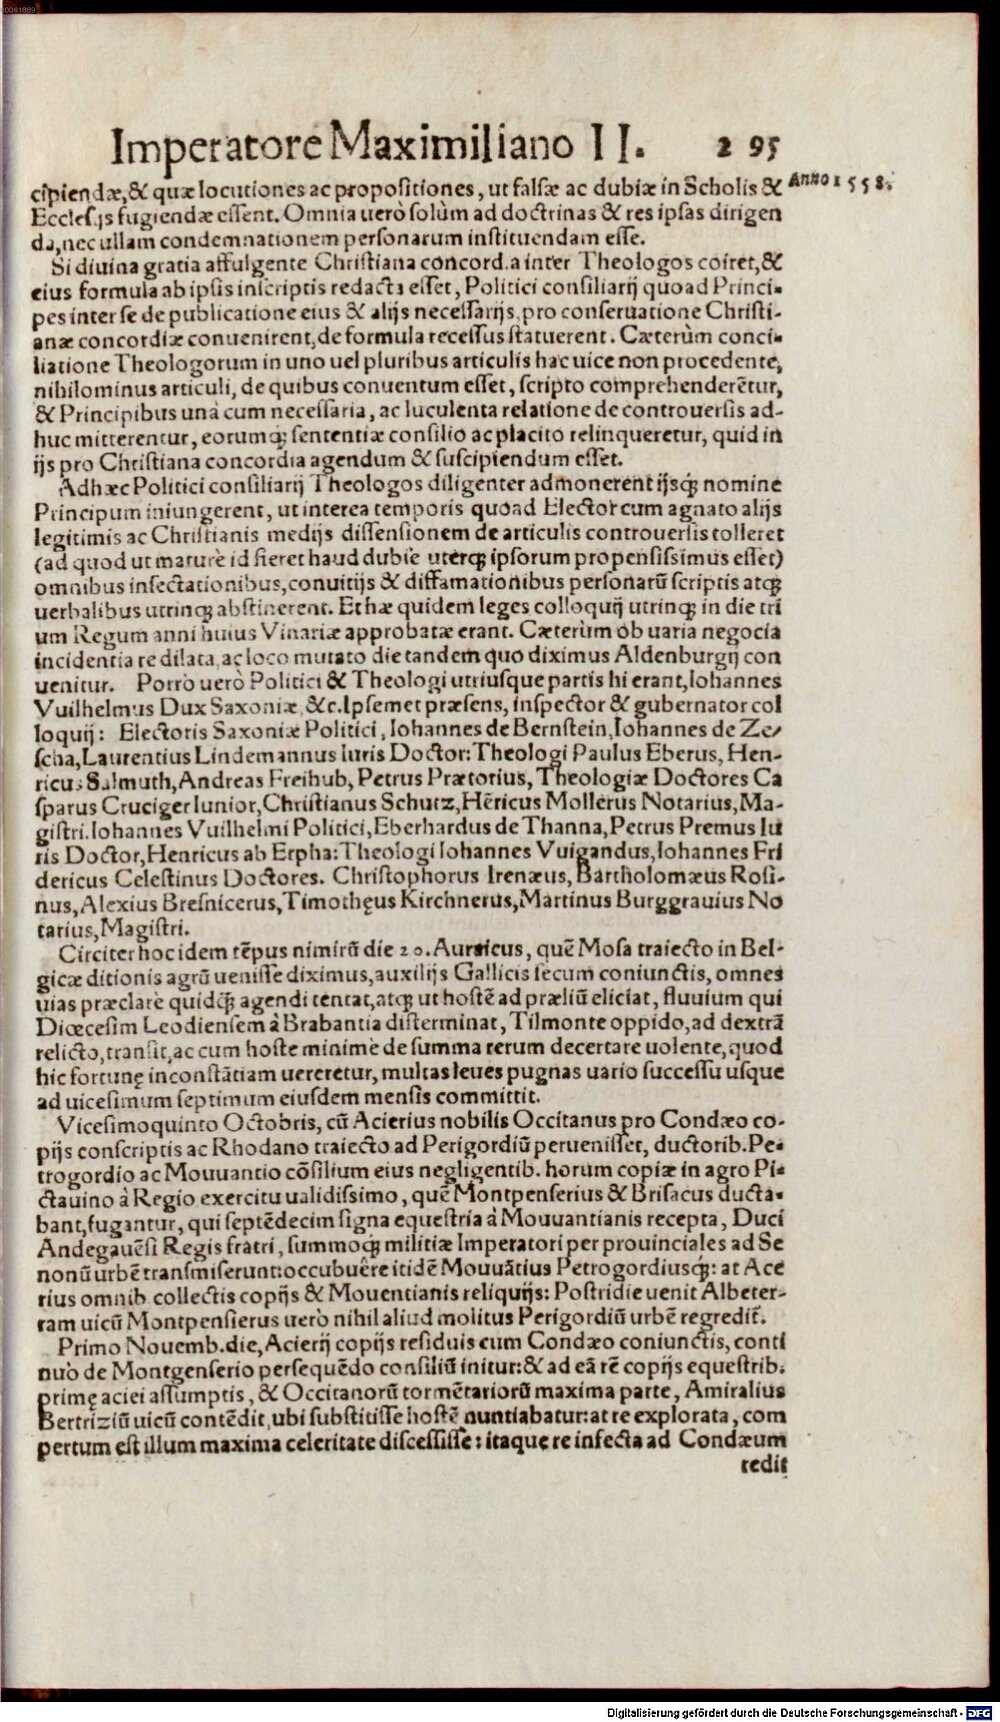 Imperatore Maximiliano II. 295
Anno 1558.
cipiendæ, & quæ locutiones ac propositiones, ut falsæ ac dubiæ in Scholis &
Eccles.js fugiendæ essent. Omnia uerò solùm ad doctrinas & res ipsas dirigen
da, nec ullam condemnationem personarum instituendam esse.
Si diuina gratia affulgente Christiana concord.a inter Theologos coiret, &
eius formula ab ipsis inscriptis redacta esset, Politici consiliarij quoad Princi-
pes inter se de publicatione eius & alijs necessarijs, pro conseruatione Christi-
anæ concordiæ conuenirent, de formula recessus statuerent. Cæterùm conci-
liatione Theologorum in uno uel pluribus articulis hac uice non procedente,
nihilominus articuli, de quibus conuentum esset, scripto comprehenderētur,
& Principibus unà cum necessaria, ac luculenta relatione de controuersis ad-
huc mitterentur, eorumq; sententiæ consilio ac placito relinqueretur, quid in
ijs pro Christiana concordia agendum & suscipiendum esset.
Adhæc Politici consiliarij Theologos diligenter admonerent ijsq; nomine
Principum iniungerent, ut interea temporis quoad Elector cum agnato alijs
legitimis ac Christianis medijs dissensionem de articulis controuersis tolleret
(ad quod ut maturè id fieret haud dubie uterq; ipsorum propensissimus esset)
omnibus insectationibus, conuitijs & diffamationibus personarū scriptis atq;
uerbalibus utrinq; abstinerent. Et hæ quidem leges colloquij utrinq; in die tri
um Regum anni huius Vinariæ approbatæ erant. Cæterùm ob uaria negocia
incidentia re dilata, ac loco mutato die tandem quo diximus Aldenburgij con
uenitur. Porrò uerò Politici & Theologi utriusque partis hi erant, Iohannes
Vuilhelmus Dux Saxoniæ, &c. Ipsemet præsens, inspector & gubernator col
loquij: Electoris Saxoniæ Politici, Iohannes de Bernstein, Iohannes de Ze-
scha, Laurentius Lindemannus Iuris Doctor: Theologi Paulus Eberus, Hen-
ricus Salmuth, Andreas Freihub, Petrus Prætorius, Theologiæ Doctores Ca
sparus Cruciger Iunior, Christianus Schutz, Hēricus Mollerus Notarius, Ma-
gistri. Iohannes Vuilhelmi Politici, Eberhardus de Thanna, Petrus Premus Iu
ris Doctor, Henricus ab Erpha: Theologi Iohannes Vuigandus, Iohannes Fri
dericus Celestinus Doctores. Christophorus Irenæus, Bartholomæus Rosi-
nus, Alexius Bresnicerus, Timothęus Kirchnerus, Martinus Burggrauius No
tarius, Magistri.
Circiter hoc idem tēpus nimirū die 20. Auraicus, quē Mosa traiecto in Bel-
gicæ ditionis agrū uenisse diximus, auxilijs Gallicis secum coniunctis, omnes
uias præclarè quidq; agendi tentat, atq; ut hostē ad præliū eliciat, fluuium qui
Diœcesim Leodiensem à Brabantia disterminat, Tilmonte oppido, ad dextrā
relicto, transit, ac cum hoste minimè de summa rerum decertare uolente, quod
hic fortunę inconstātiam uereretur, multas leues pugnas uario successu usque
ad uicesimum septimum eiusdem mensis committit.
Vicesimoquinto Octobris, cū Acierius nobilis Occitanus pro Condæo co-
pijs conscriptis ac Rhodano traiecto ad Perigordiū peruenisset, ductorib. Pe-
trogordio ac Mouuantio cōsilium eius negligentib. horum copiæ in agro Pi-
ctauino à Regio exercitu ualidissimo, quē Montpenserius & Brisacus ducta-
bant, fugantur, qui septēdecim signa equestria à Mouuantianis recepta, Duci
Andegauēsi Regis fratri, summoq; militiæ Imperatori per prouinciales ad Se
nonū urbē transmiserunt: occubuêre itidē Mouuātius Petrogordiusq;: at Ace
rius omnib. collectis copijs & Mouentianis reliquijs: Postridie uenit Albeter-
ram uicū Montpensierus uerò nihil aliud molitus Perigordiū urbē regredit̃.
Primo Nouemb. die, Acierij copijs residuis cum Condæo coniunctis, conti
nuò de Montgenserio persequēdo consiliū initur: & ad eā rē copijs equestrib.
primę aciei assumptis, & Occitanorū tormētariorū maxima parte, Amiralius
Bertriziū uicū contēdit, ubi substitisse hostē nuntiabatur: at re explorata, com
pertum est illum maxima celeritate discessisse: itaque re infecta ad Condæum
redit
Digitalisierung gefördert durch die Deutsche Forschungsgemeinschaft - DFG